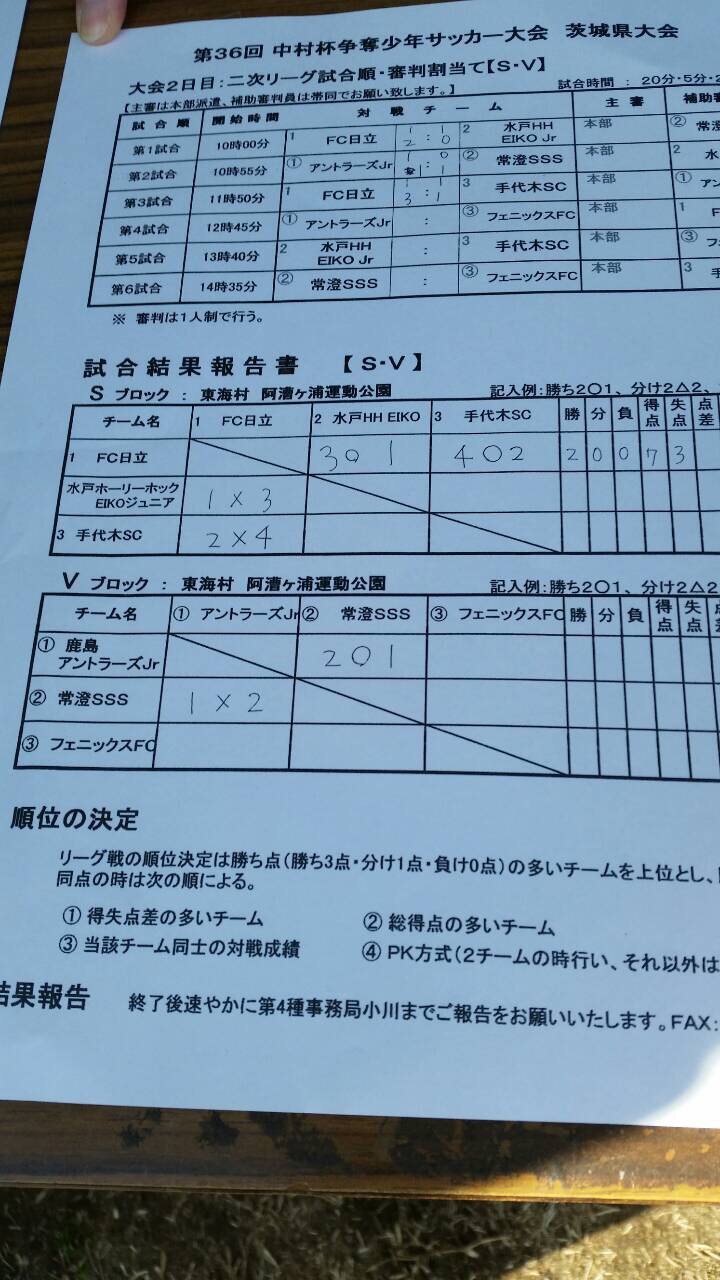 第36回 中村杯争奪少年サッカー大会 茨城県大会
大会2日目:二次リーグ試合順・審判割当て【S・V】
試合時間 : 20分・5分・2
【主審は本部派遣、補助審判員は帯同でお願い致します。】
試合順 開始時間 対戦チーム 主審 補助審
第1試合 10時00分 1 FC日立 1 2 : 1 0 2 水戸HH EIKO Jr 本部 ② 常澄
第2試合 10時55分 ① アントラーズJr 1 1 : 0 1 ② 常澄SSS 本部 2 水
第3試合 11時50分 1 FC日立 1 3 : 1 1 3 手代木SC 本部 ① アン
第4試合 12時45分 ① アントラーズJr : ③ フェニックスFC 本部 1 F
第5試合 13時40分 2 水戸HH EIKO Jr : 3 手代木SC 本部 ③ フ
第6試合 14時35分 ② 常澄SSS : ③ フェニックスFC 本部 3 手
※ 審判は1人制で行う。
試合結果報告書 【S・V】
S ブロック : 東海村 阿漕ヶ浦運動公園 記入例:勝ち2〇1、分け2△2、
チーム名 1 FC日立 2 水戸HH EIKO 3 手代木SC 勝 分 負 得点 失点 点差
1 FC日立 3〇1 4〇2 2 0 0 7 3
水戸ホーリーホック EIKOジュニア 1×3
3 手代木SC 2×4
V ブロック : 東海村 阿漕ヶ浦運動公園 記入例:勝ち2〇1、分け2△2
チーム名 ① アントラーズJr ② 常澄SSS ③ フェニックスFC 勝 分 負 得点 失点
① 鹿島 アントラーズJr 2〇1
② 常澄SSS 1×2
③ フェニックスFC
順位の決定
リーグ戦の順位決定は勝ち点(勝ち3点・分け1点・負け0点)の多いチームを上位とし、
同点の時は次の順による。
① 得失点差の多いチーム ② 総得点の多いチーム
③ 当該チーム同士の対戦成績 ④ PK方式(2チームの時行い、それ以外は
結果報告 終了後速やかに第4種事務局小川までご報告をお願いいたします。FAX: